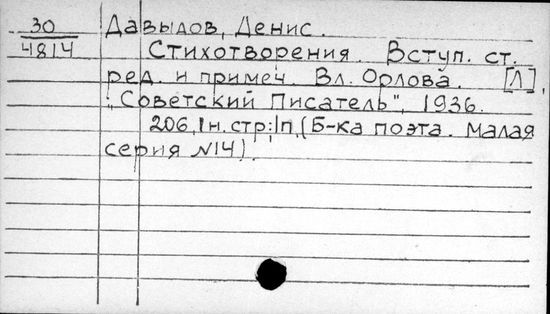 30
4814
Давыдов, Денис.
Стихотворения. Вступ. ст.
ред. и примеч. Вл. Орлова. [Л].
"Советский Писатель", 1936.
206, 1н. стр: 1п. (Б-ка поэта. Малая
серия №14).